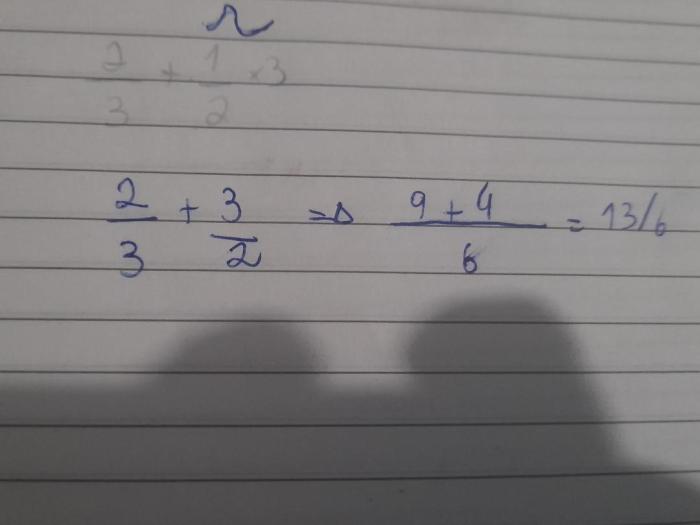 2/3 + 1/2 × 3
2/3 + 3/2 ⇒ (9 + 4)/6 = 13/6